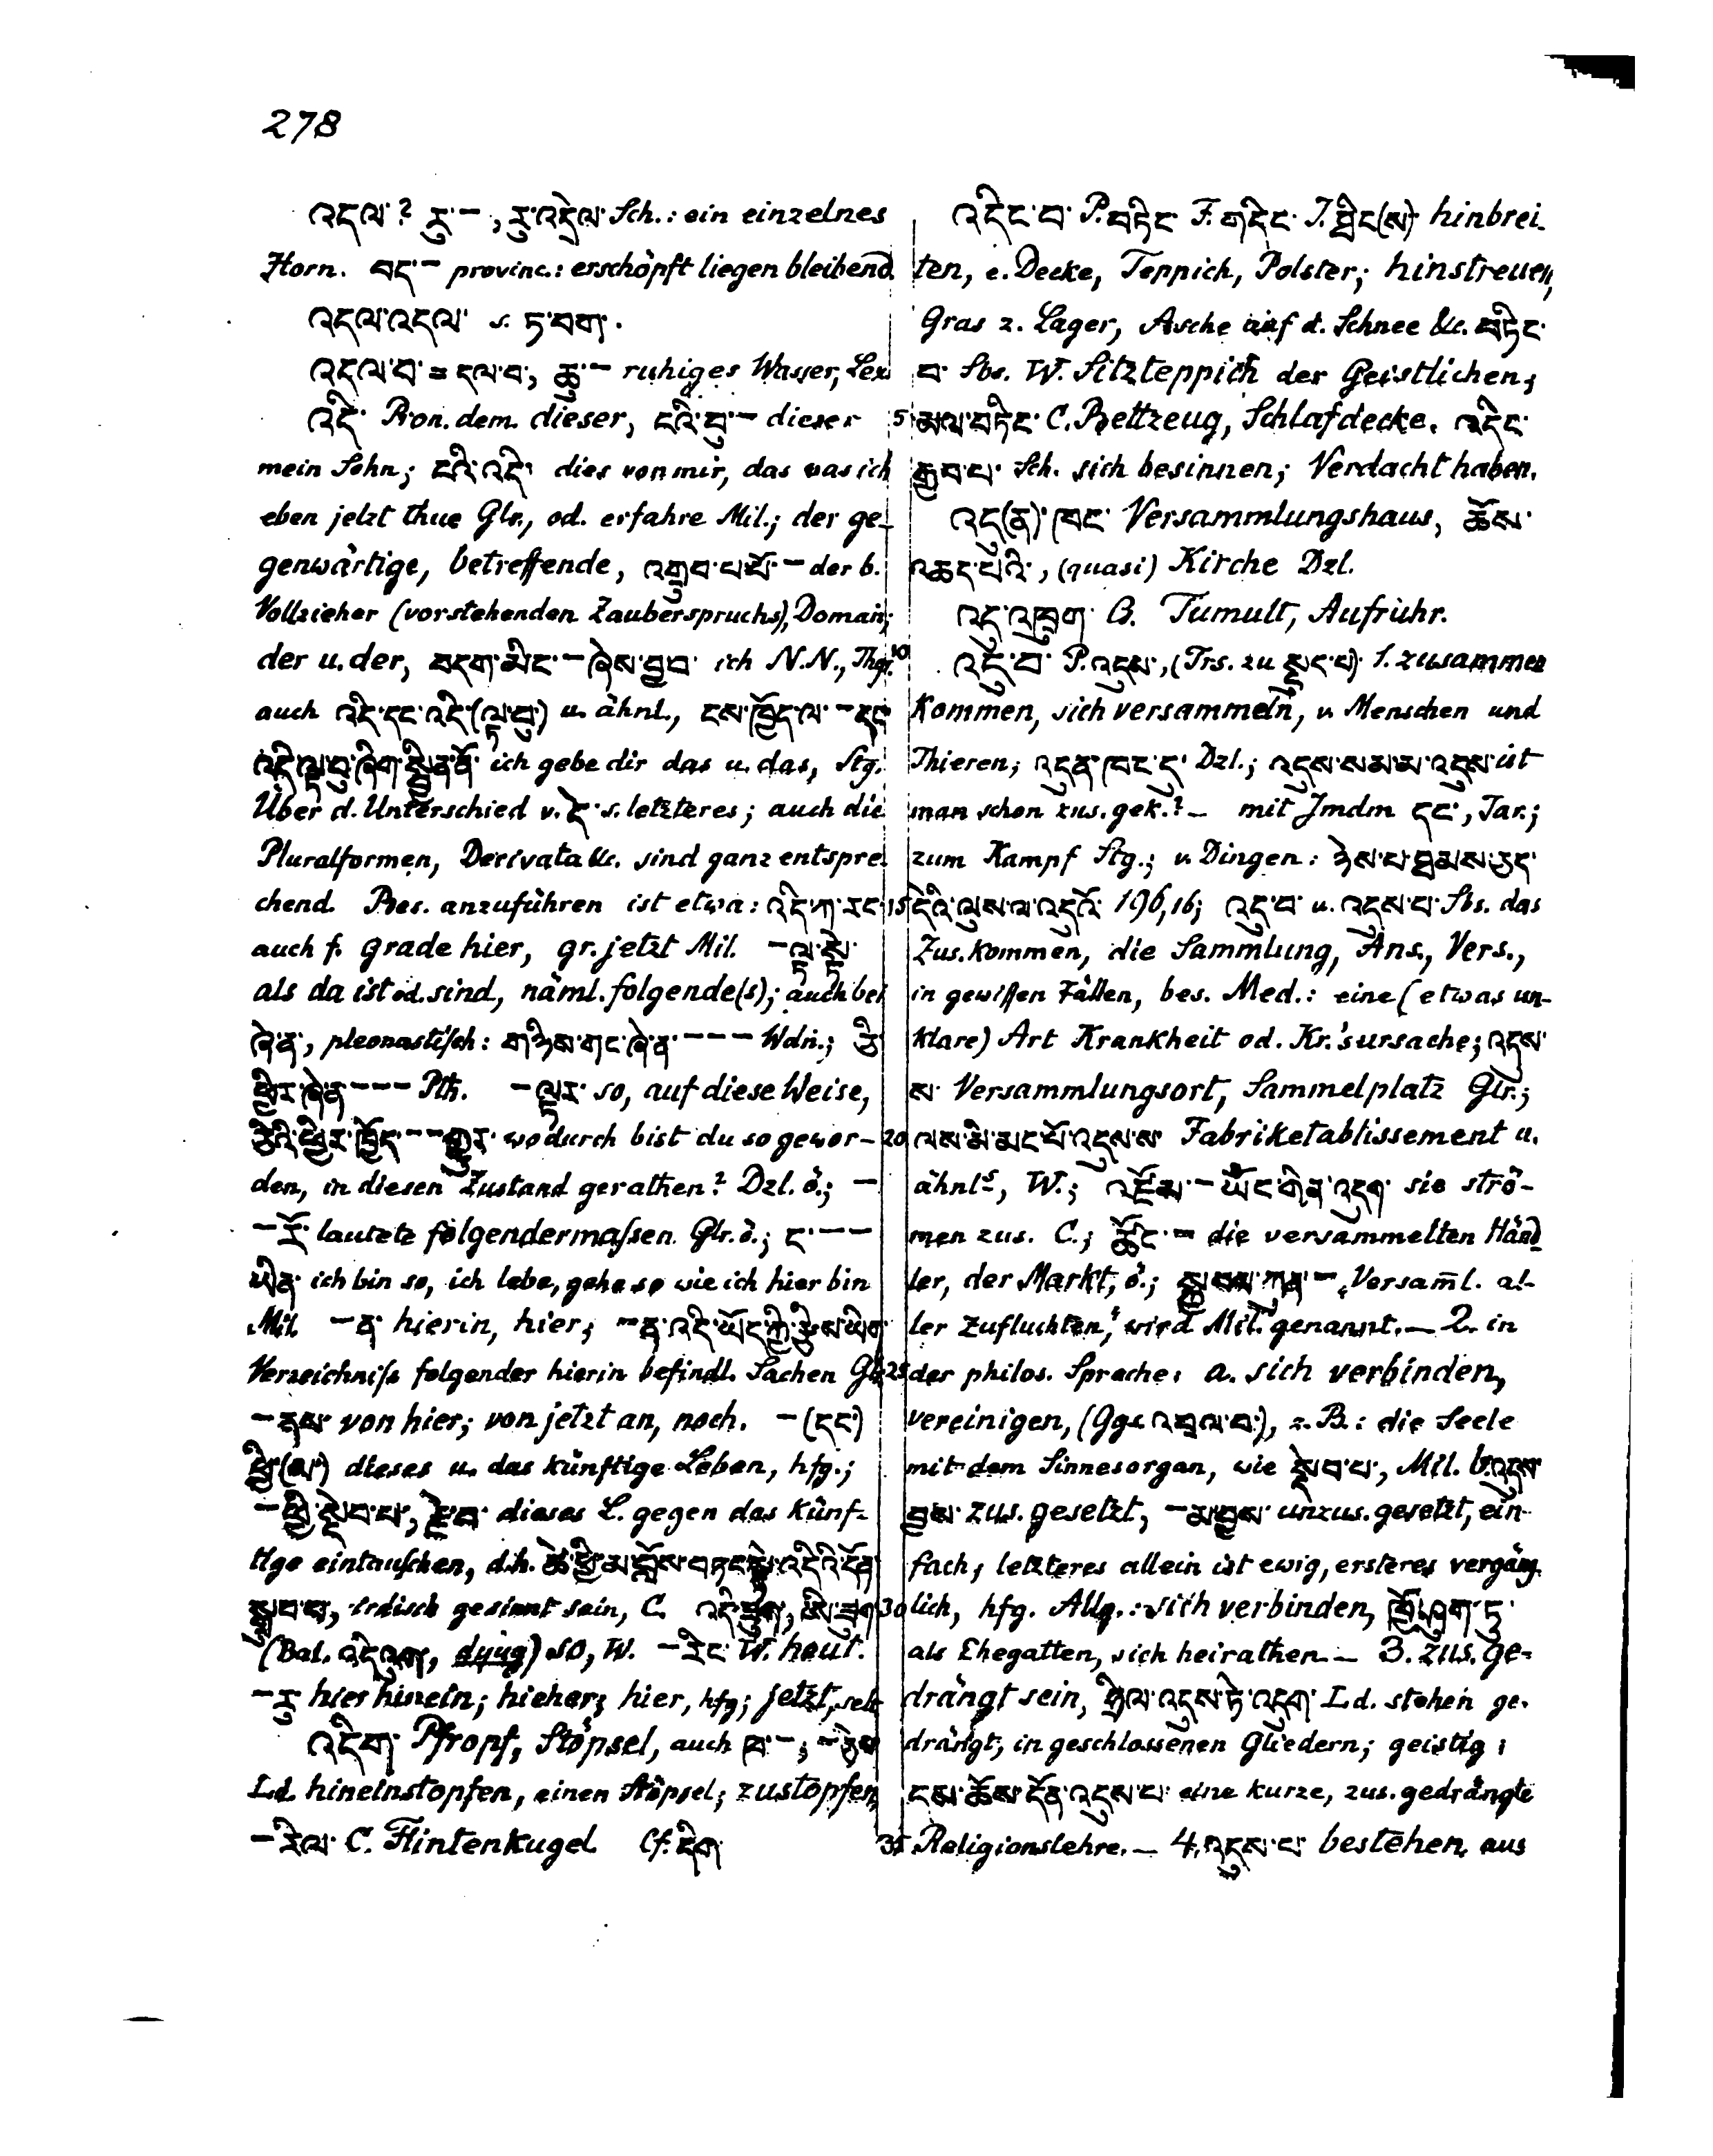 278
འདལ་? རུ་–, རུ་འདྲེལ་ Sch.: ein einzelnes
Horn. བད་– provinc.: erschöpft liegen bleibend.
འདལ་འདལ་ s. ཏ་བག་.
འདལ་བ་ = དལ་བ་, ཆུ་– ruhiges Wasser, Lex
འདི་ Pron. dem. dieser, ངའི་བུ་– dieser
mein Sohn; ངའི་འདི་ dies von mir, das was ich
eben jetzt thue Glr., od. erfahre Mil.; der ge-
genwärtige, betreffende, འགྲུབ་པ་པོ་– der b.
Vollzieher (vorstehenden Zauberspruchs), Doman;
der u. der, བདག་མིང་–ཞེས་བྱ་བ་ ich N.N., Thgr.
auch འདི་དང་འདི་(ལྟ་བུ་) u. ähnl., ངས་ཁྱོད་ལ་–དང་
འདི་ལྟ་བུ་ཞིག་སྦྱིན་ནོ་ ich gebe dir das u. das, Stg.
Über d. Unterschied v. དེ་ s. letzteres; auch die
Pluralformen, Derivata &c. sind ganz entspre-
chend. Bes. anzuführen ist etwa: འདི་ཀ་རང་
auch f. grade hier, gr. jetzt Mil. –ལྟ་སྟེ་
als da ist od. sind, näml. folgende(s); auch bei
ཞེ་ན་, pleonastisch: གཉིས་གང་ཞེ་ན་––– Wdn.; ཅི
ཕྱིར་ཞེ་ན་––– Pth. –ལྟར་ so, auf diese Weise,
ཅིའི་ཕྱིར་ཁྱོད་––གྱུར་ wodurch bist du so gewor-
den, in diesen Zustand gerathen? Dzl. ö.; –
–རོ་ lautete folgendermassen. Glr. ö.; ང་––
ཡིན་ ich bin so, ich lebe, gehe so wie ich hier bin
Mil. –ན་ hierin, hier; –ན་འདི་ཡོད་ཀྱི་རྩིས་ཡིག་
Verzeichniss folgender hierin befindl. Sachen Glr.
–ནས་ von hier; von jetzt an, noch. –(དང་)
ཕྱི་(མ་) dieses u. das künftige Leben, hfg.;
–ཕྱི་སྡེབ་པ་, རྗེ་བ་ dieses L. gegen das künf-
tige eintauschen, d.h.
སྒྲུབ་པ་, irdisch gesinnt sein, C.
(Bal. dyūg) so, W. –རིང་ W. heut.
–རུ་ hier hinein; hieher; hier, hfg; jetzt, selt
འདིག་ Pfropf, Stöpsel, auch ཁ་–;
Ld. hineinstopfen, einen Stöpsel; zustopfen,
–རིལ་ C. Flintenkugel Cf. དིག་
འདིང་བ་ P. བཏིང་ F. གདིང་ J. ཐིང(ས)་ hinbrei-
ten, e. Decke, Teppich, Polster; hinstreuen,
Gras z. Lager, Asche auf d. Schnee &c. བཏིང་
བ་ Sbs. W. Sitzteppich der Geistlichen;
5 མལ་བཏིང་ C. Bettzeug, Schlafdecke. འདིང་
རྒྱབ་པ་ Sch. sich besinnen; Verdacht haben.
འདུ(ན)་ཁང་ Versammlungshaus, ཆོས་
འཆད་པའི་, (quasi) Kirche Dzl.
འདུ་འཁྲུག་ B. Tumult, Aufruhr.
10 འདུ་བ་ P. འདུས་, (Trs. zu སྡུད་པ་) 1. zusammen
kommen, sich versammeln, v. Menschen und
Thieren; འདུན་ཁང་དུ་ Dzl.; འདུས་སམ་མ་འདུས་ ist
man schon zus. gek.? – mit Jmdm དང་, Tar.;
zum Kampf Stg.; v. Dingen: ཉེས་པ་ཐམས་ཅད་
15 དེའི་ལུས་ལ་འདུའོ་ 196,16; འདུ་བ་ u. འདུས་པ་ Sbs. das
Zus. kommen, die Sammlung, Ans., Vers.,
in gewissen Fällen, bes. Med.: eine (etwas un-
klare) Art Krankheit od. Kr.'sursache; འདུས་
ས་ Versammlungsort, Sammelplatz Glr.;
20 ལས་མི་མང་པོ་འདུས་ས་ Fabriketablissement u.
ähnls, W.; འཛོམ་–ཡོང་གིན་འདུག་ sie strö-
men zus. C.; ཚོང་– die versammelten Händ-
ler, der Markt, ö.; སྐྱབས་ཀུན་– „Versam̄l. al-
ler Zufluchten," wird Mil. genannt. – 2. in
25 der philos. Sprache: a. sich verbinden,
vereinigen, (Ggs. འབྲལ་བ་), z.B.: die Seele
mit dem Sinnesorgan, wie སྡེབ་པ་, Mil. b. འདུས་
བྱས་ zus. gesetzt, –མ་བྱས་ unzus. gesetzt, ein-
fach; letzteres allein ist ewig, ersteres vergäng-
30 lich, hfg. Allg.: sich verbinden, ཁྱོ་ཤུག་ཏུ་
als Ehegatten, sich heirathen. – 3. zus. ge-
drängt sein, ཧྲིལ་འདུས་ཏེ་འདུག་ Ld. stehen ge-
drängt, in geschlossenen Gliedern; geistig:
ངས་ཆོས་དོན་འདུས་པ་ eine kurze, zus. gedrängte
35 Religionslehre. – 4. འདུས་པ་ bestehen aus